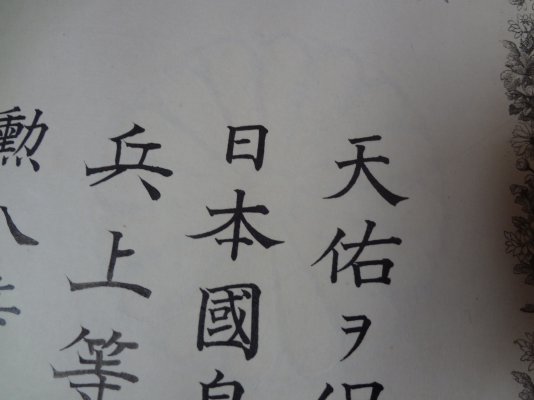 天佑ヲ
日本國
兵上等
勲八